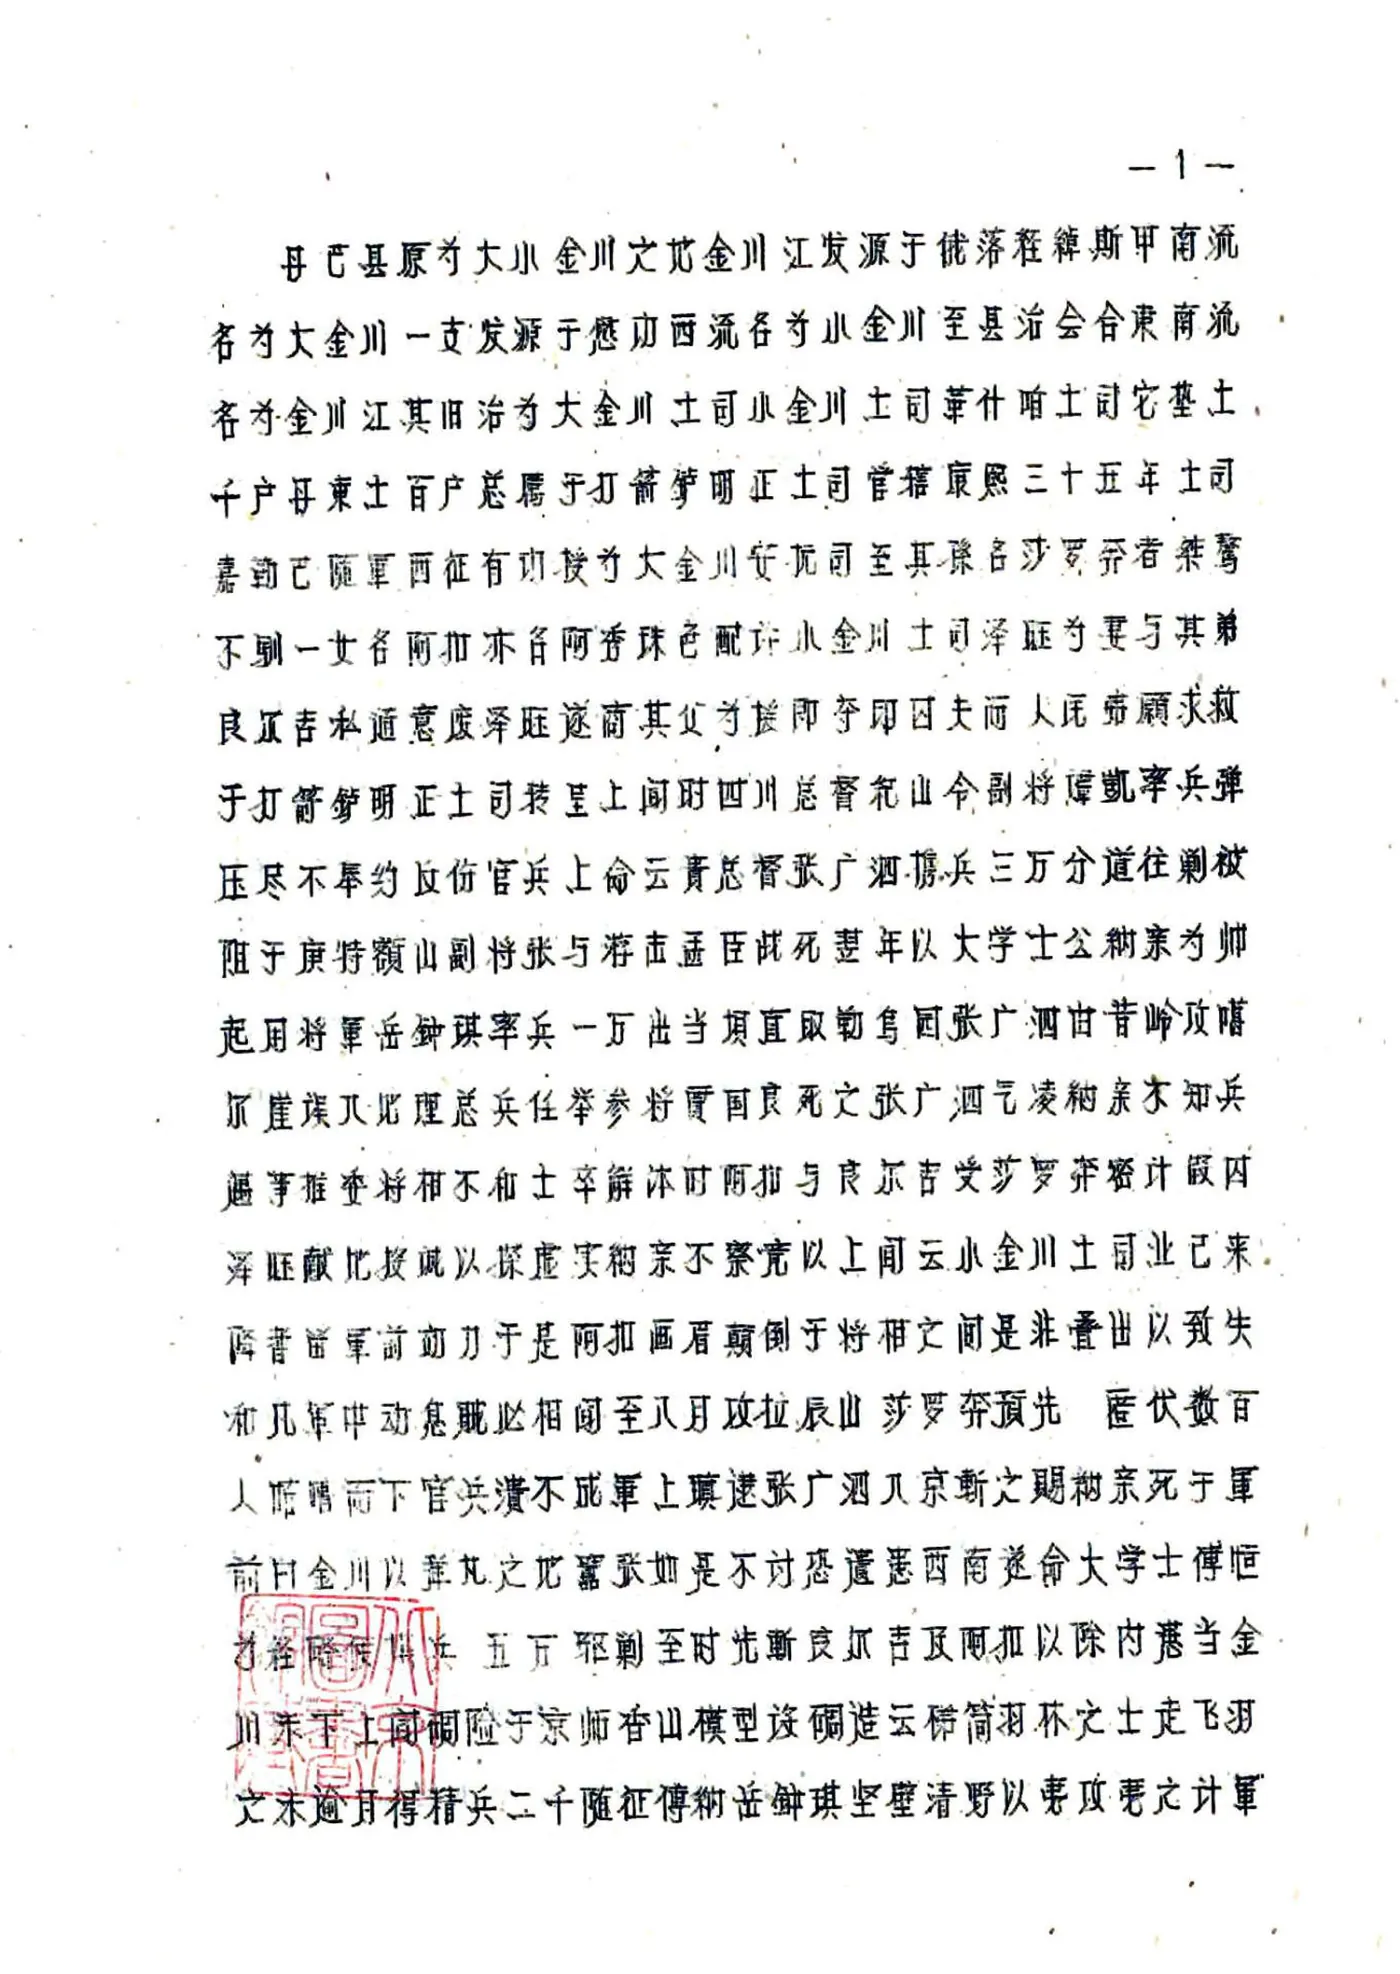 —1—
丹巴县原为大小金川之地金川江发源于俄落程绰斯甲南流
名为大金川一支发源于懋功西流名为小金川至县治会合东南流
名为金川江其旧治为大金川土司小金川土司革什咱土司它垫土
千户丹東土百户总属于打箭炉明正土司管辖康熙三十五年土司
嘉勒巴随軍西征有功授为大金川安抚司至其孫名莎罗奔者桀骜
不馴一女名阿扣亦名阿秀珠色配许小金川土司泽旺为妻与其弟
良尔吉私通意废泽旺遂商其父为援即夺印囚夫而人民帝願求救
于打箭炉明正土司转呈上闻时四川总督紀山令副将凱率兵弹
压尽不奉约反伤官兵上命云貴总督张广泗携兵三万分道往剿被
阻于庚特額山副将张与游击孟臣战死翌年以大学士公納亲为帅
起用将軍岳钟琪率兵一万出当埧直取勒乌围张广泗由昔岭攻噶
尔崖误入地理总兵任举参将賈国良死之张广泗气凌納亲不知兵
遇事推委将相不和士卒解体时阿扣与良尔吉受莎罗奔密计假囚
泽旺献地投诚以探虚实納亲不察竟以上闻云小金川土司业已来
降書留軍前効力于是阿扣画眉颠倒于将相之间是非叠出以致失
和凡軍中动息贼必相闻至八月攻拉辰山莎罗奔預先 匿伏数百
人而下官兵潰不成軍上瑱逮张广泗入京斬之賜納亲死于軍
前曰金川以弹丸之地嚣张如是不讨恐遺患西南遂命大学士傅恒
为经兵 五万 剿至时先斬良尔吉及阿扣以除内患当金
川未下上闻碉险于京师香山模型设碉造云梯简羽林之士走飞羽
之未逾月得精兵二千随征傅納岳钟琪坚壁清野以夷攻夷之计軍